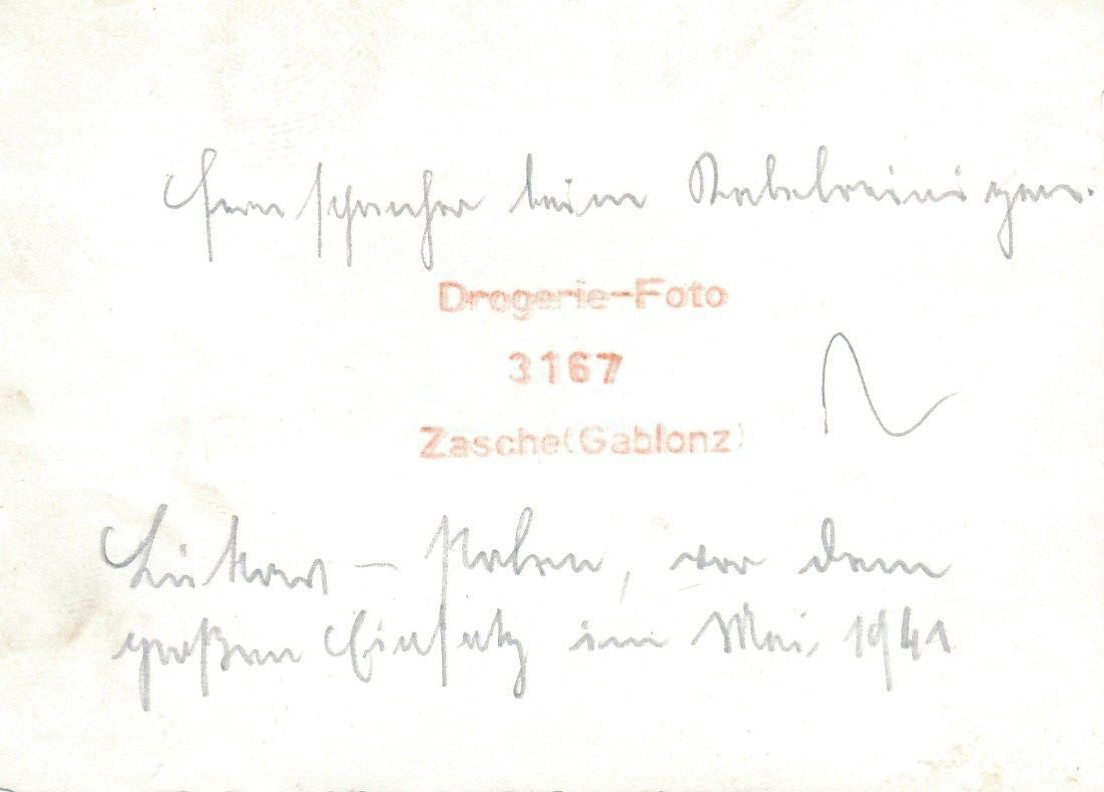 Fernsprecher beim Kabelreinigen.
Drogerie-Foto
3167
Zasche(Gablonz)
Lukow – Polen, vor dem
großen Einsatz im Mai 1941